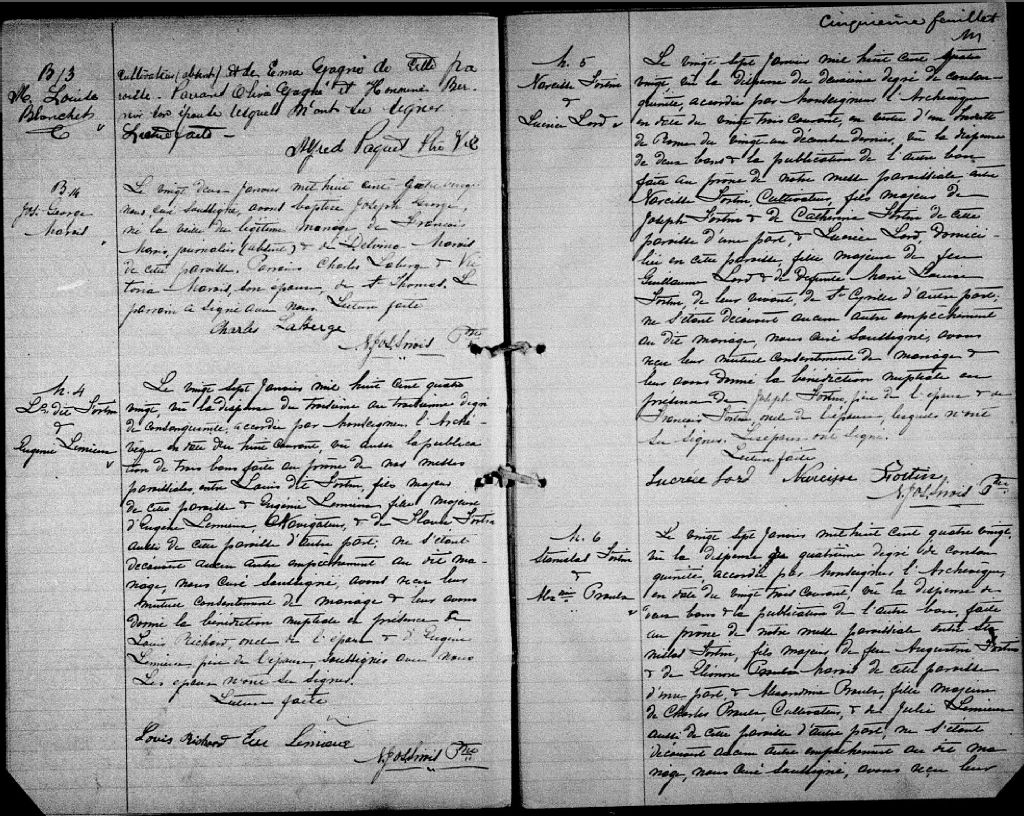 B 13
M. Louida
Blanchet
cultivateur (absent) & de Ema Gagné de cette pa
roisse. Parrain Olivia Gagné et Honorius Ber-
nier son épouse lesquels n'ont su signer
Lecture faite —
Alfred Paquet Ptre Vic
B 14
Js. George
Marois
Le vingt deux Janvier mil huit cent quatre vingt
nous, curé soussigné, avons baptisé Joseph George,
né la veille du légitime mariage de François
Marois, journalier (absent) & de Delvina Marois
de cette paroisse. Parrains Charles Laberge & Vic
toria Marois, son épouse, de St Thomas. Le
parrain a signé avec nous. Lecture faite
Charles Laberge
Ptre
M. 4
Ls dit Fortin
&
Eugénie Lemieux
Le vingt sept Janvier mil huit cent quatre
vingt, vu la dispense du troisième au troisième degré
de consanguinité, accordée par Monseigneur l'Arche-
vêque en date du huit courant, vu aussi la publica
tion de trois bans faite au prône de nos messes
paroissiales, entre Louis dit Fortin, fils majeur
de cette paroisse & Eugénie Lemieux, fille majeure
d'Eugène Lemieux Navigateur, & de Flavie Fortin
aussi de cette paroisse d'autre part; ne s'étant
découvert aucun autre empêchement au dit ma-
riage, nous curé soussigné, avons reçu leur
mutuel consentement de mariage & leur avons
donné la bénédiction nuptiale en présence de
Louis Richard, oncle de l'époux & d'Eugène
Lemieux père de l'épouse, soussignés avec nous
Les époux n'ont su signer.
Lecture faite
Louis Richard Eu Lemieux
Ptre
Cinquieme feuillet
M. 5
Narcisse Fortin
&
Lucrèce Lord
Le vingt sept Janvier mil huit cent quatre
vingt, vu la dispense du deuxième degré de consan-
guinité, accordée par Monseigneur l'Archevêque
en date du vingt trois courant, en vertu d'un Indult
de Rome du vingt un décembre dernier, vu la dispense
de deux bans & la publication de l'autre ban
faite au prône de notre messe paroissiale, entre
Narcisse Fortin, Cultivateur, fils majeur de
Joseph Fortin & de Catherine Fortin de cette
paroisse d'une part, & Lucrèce Lord domici-
liée en cette paroisse, fille majeure de feu
Guillaume Lord & de défunte Marie Louise
Fortin, de leur vivant, de St Cyrille d'autre part;
ne s'étant découvert aucun autre empêchement
au dit mariage, nous curé soussigné, avons
reçu leur mutuel consentement de mariage &
leur avons donné la bénédiction nuptiale en
présence de Joseph Fortin, père de l'époux & de
François Fortin, oncle de l'épouse, lesquels n'ont
su signer. Les époux ont signé.
Lecture faite
Lucrèse Lord Narcisse Fortin
Ptre
M. 6
Stanislas Fortin
&
Alx.ine Proulx
Le vingt sept Janvier mil huit cent quatre vingt,
vu la dispense du quatrième degré de consan
guinité, accordée par Monseigneur l'Archevêque,
en date du vingt trois courant, vu la dispense de
deux bans & la publication de l'autre ban, faite
au prône de notre messe paroissiale entre Sta
nislas Fortin, fils majeur de feu Augustin Fortin
& de Eléonore Proulx de cette paroisse
d'une part, & Alexandrine Proulx fille majeure
de Charles Proulx, Cultivateur, & de Julie Lemieux
aussi de cette paroisse d'autre part, ne s'étant
découvert aucun autre empêchement au dit ma
riage, nous curé soussigné, avons reçu leur